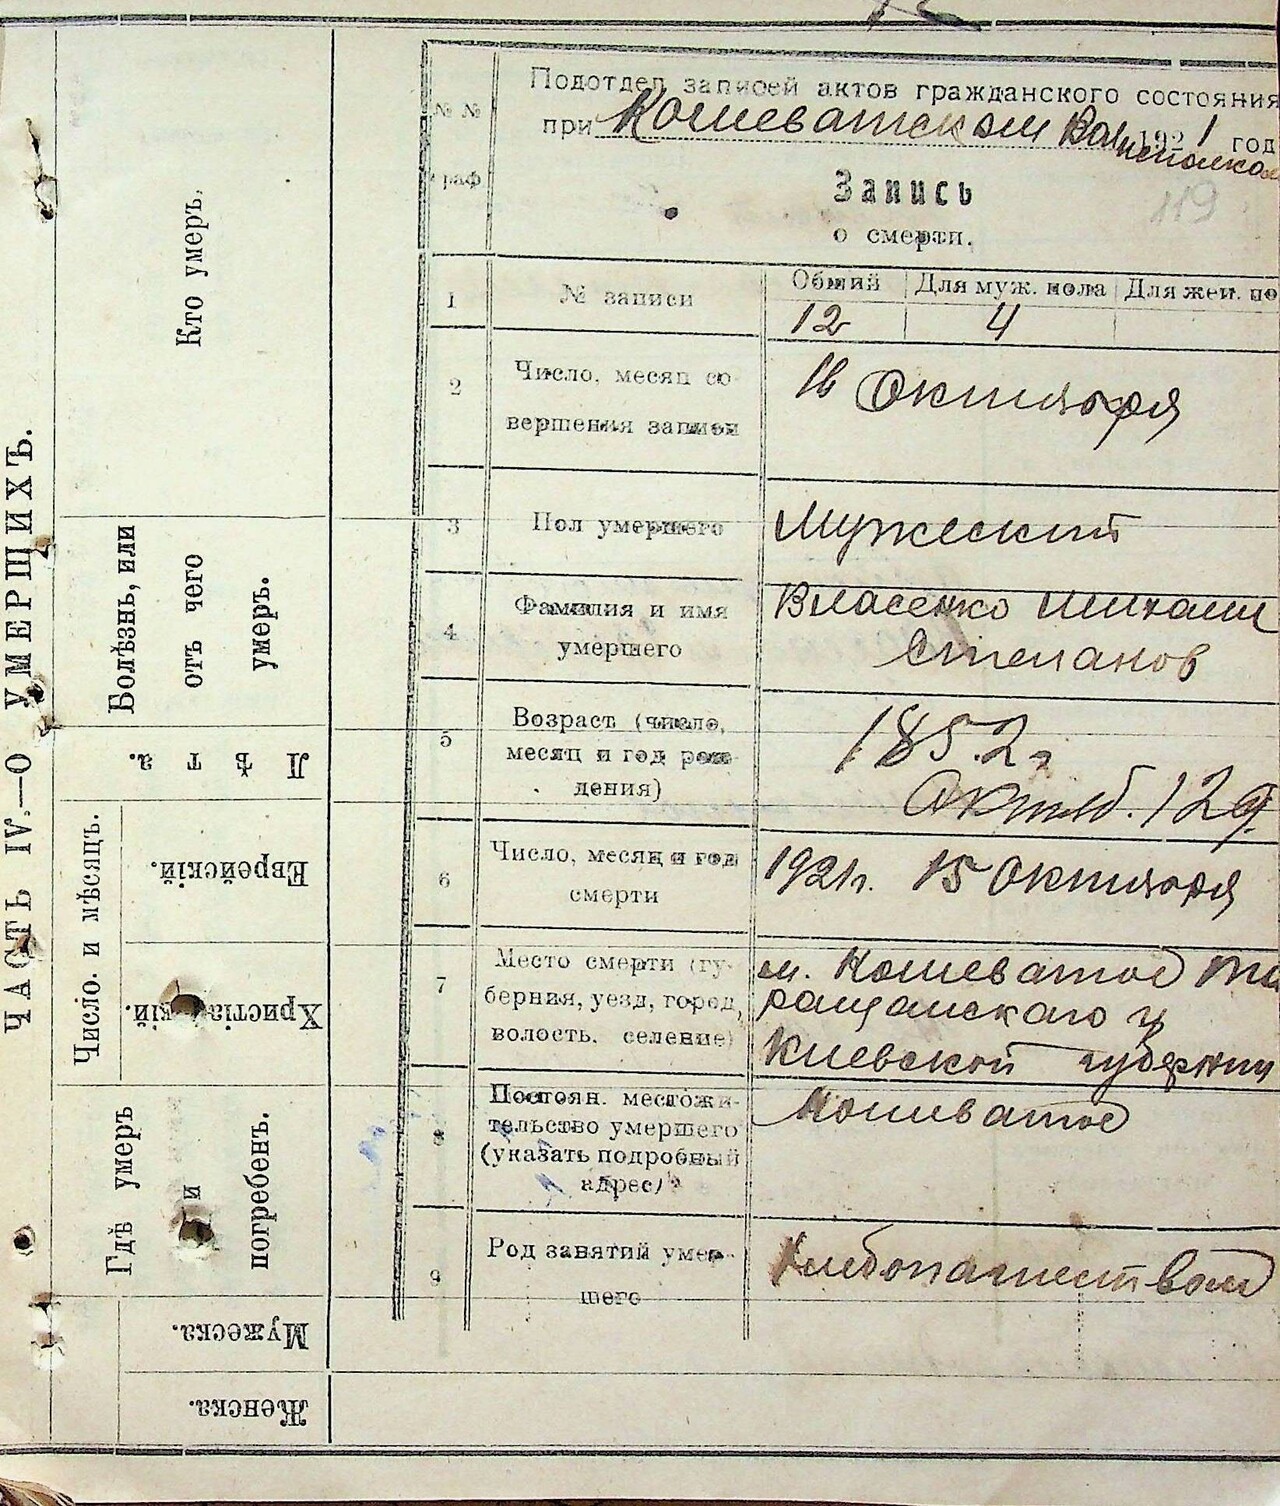 ЧАСТЬ IV.—О УМЕРШИХЪ.
Кто умеръ.
Болѣзнь, или
отъ чего
умеръ.
Лѣта.
Число и мѣсяцъ.
Еврейскій.
Гдѣ умеръ
и
погребенъ.
Мужеска.
Женска.
№ №
граф
Подотдел записей актов гражданского состояния
при Кошеватском Волисполком 1921 год
119
Запись
о смерти.
1 № записи Общий Для муж. пола Для жен. по
12 4
2 Число, месяц со-
вершения записи
16 Октября
3 Пол умершего Мужеский
4 Фамилия и имя
умершего
Власенко Михаил
Степанов
5 Возраст (число,
месяц и год рож-
дения)
1852 г
Октяб. 12 д.
6 Число, месяц и год
смерти
1921 г. 15 Октября
7 Место смерти (гу-
берния, уезд, город,
волость, селение)
м. Кошеватое Та
ращанскаго у
Киевской губернии
8 Постоян. местожи-
тельство умершего
(указать подробный
адрес)
Кошеватое
9 Род занятий умер-
шего
Хлебопашеством